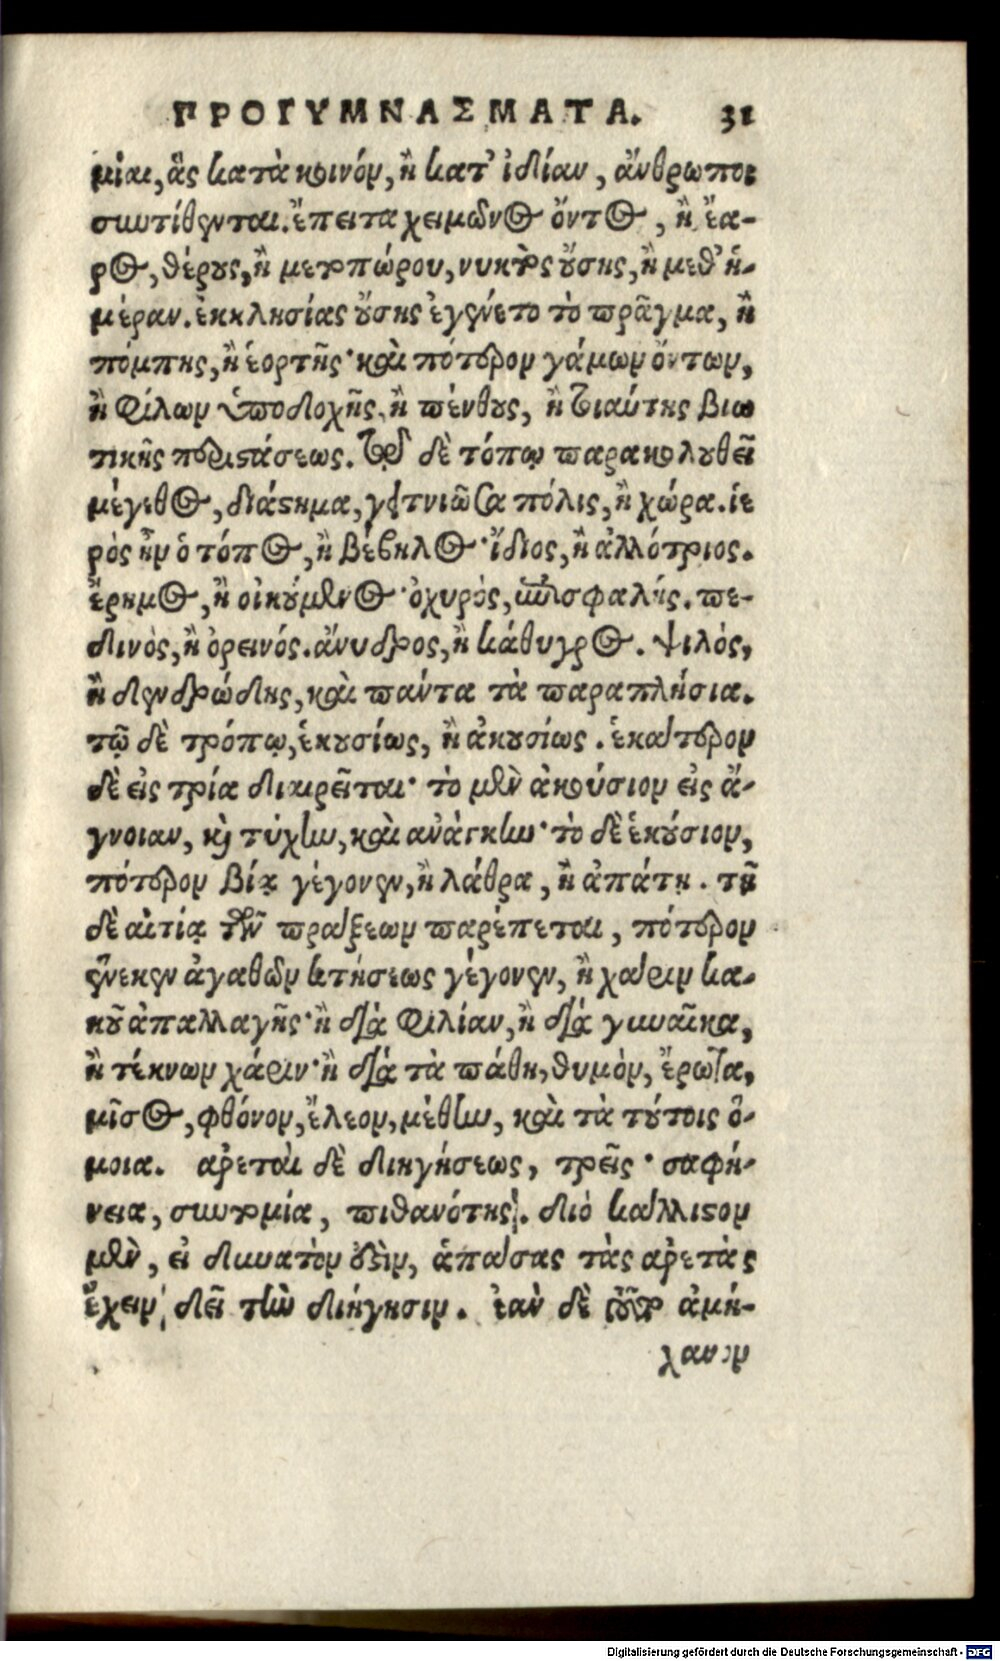 ΠΡΟΓΥΜΝΑΣΜΑΤΑ. 31
μίαι, ἃς κατὰ κοινόν, ἢ κατ' ἰδίαν, ἄνθρωποι
συντίθενται. ἔπειτα χειμῶνος ὄντος, ἢ ἔα-
ρος, θέρους, ἢ μετοπώρου, νυκτὸς οὔσης, ἢ μεθ' ἡ-
μέραν. ἐκκλησίας οὔσης ἐγένετο τὸ πρᾶγμα, ἢ
πόμπης, ἢ ἑορτῆς· καὶ πότερον γάμων ὄντων,
ἢ φίλων ὑποδοχῆς, ἢ πένθους, ἢ τοιαύτης βιω
τικῆς περιστάσεως. τῷ δὲ τόπῳ παρακολουθεῖ
μέγεθος, διάστημα, γειτνιῶσα πόλις, ἢ χώρα. ἱε
ρὸς ἦν ὁ τόπος, ἢ βέβηλος· ἴδιος, ἢ ἀλλότριος.
ἔρημος, ἢ οἰκούμενος· ὀχυρὸς, ἐπισφαλής. πε-
δινὸς, ἢ ὀρεινός. ἄνυδρος, ἢ κάθυγρος. ψιλὸς,
ἢ δενδρώδης, καὶ πάντα τὰ παραπλήσια.
τῷ δὲ τρόπῳ, ἑκουσίως, ἢ ἀκουσίως. ἑκάτερον
δὲ εἰς τρία διαιρεῖται· τὸ μὲν ἀκούσιον εἰς ἄ-
γνοιαν, καὶ τύχην, καὶ ἀνάγκην· τὸ δὲ ἑκούσιον,
πότερον βίᾳ γέγονεν, ἢ λάθρα, ἢ ἀπάτῃ. τῇ
δὲ αἰτίᾳ τῶν πράξεων παρέπεται, πότερον
ἕνεκεν ἀγαθῶν κτήσεως γέγονεν, ἢ χάριν κα-
κοῦ ἀπαλλαγῆς· ἢ διὰ φιλίαν, ἢ διὰ γυναῖκα,
ἢ τέκνων χάριν· ἢ διὰ τὰ πάθη, θυμὸν, ἔρωτα,
μῖσος, φθόνον, ἔλεον, μέθην, καὶ τὰ τούτοις ὅ-
μοια. ἀρεταὶ δὲ διηγήσεως, τρεῖς· σαφή-
νεια, συντομία, πιθανότης. διὸ κάλλιστον
μὲν, εἰ δυνατὸν ἐστὶν, ἁπάσας τὰς ἀρετὰς
ἔχειν δεῖ τὴν διήγησιν. ἐὰν δὲ τοῦτο ἀμή-
χανον
Digitalisierung gefördert durch die Deutsche Forschungsgemeinschaft - DFG